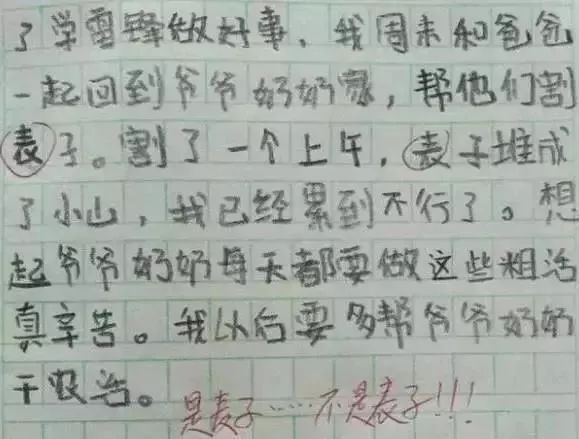 了学雷锋做好事，我周末和爸爸
一起回到爷爷奶奶家，帮他们割
表子。割了一个上午，表子堆成
了小山，我已经累到不行了。想
起爷爷奶奶每天都要做这些粗活
真辛苦。我以后要多帮爷爷奶奶
干农活。
是麦子……不是表子!!!